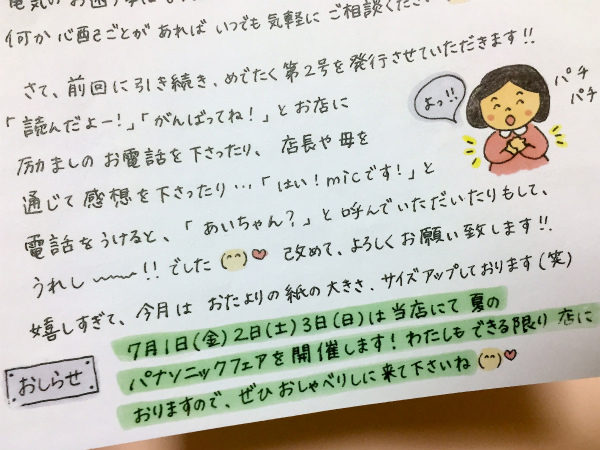 何か心配ごとがあれば いつでも気軽に ご相談ください
さて、前回に引き続き、めでたく第2号を発行させていただきます!!
「読んだよー!」「がんばってね!」とお店に
励ましの お電話を下さったり、店長や母を
通じて感想を下さったり…「はい!micです!」と
電話をうけると、「あいちゃん?」と呼んでいただいたりもして、
うれし〜!!でした 改めて、よろしくお願い致します!!
嬉しすぎて、今月は おたよりの紙の大きさ、サイズアップしております(笑)
よっ!!
パチ
パチ
おしらせ
7月1日(金)2日(土)3日(日)は当店にて 夏の
パナソニックフェアを開催します!わたしもできる限り 店に
おりますので、ぜひおしゃべりしに来て下さいね